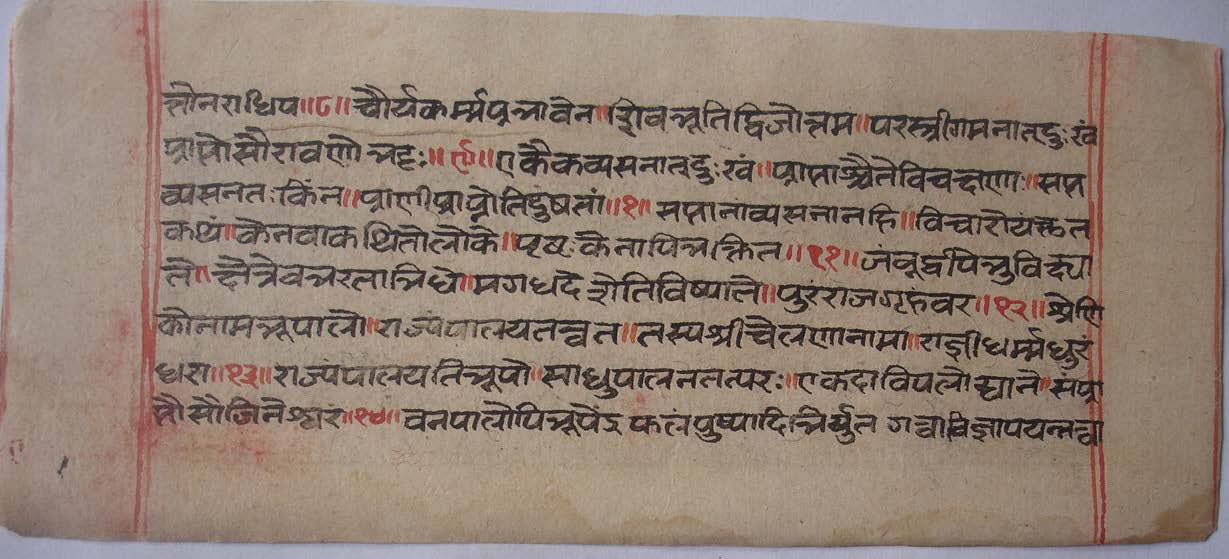 त्तोनराधिप॥८॥चौर्यकर्म्मप्रभावेन॥शिवभूतिद्विजोत्तम॥परस्त्रीगमनात्दुःखं
प्राप्तोसौरावणोभ्रष्टः॥९॥एकैकव्यसनात्दुःखं॥प्राप्ताश्चैतेविचक्षणाः॥सप्त
व्यसनतःकिंन॥प्राणीप्राप्नोतिदुषतां॥१॥सप्तानांव्यसनानहि॥विचारोयत्कृत
कथं॥केनवाकथितोलोके॥पृष्टःकेनापिभक्तित॥११॥जंबूद्वीपेभुविख्या
ते॥क्षेत्रेवभरताभिधे॥मगधदेशेतिविष्याते॥पुरराजगृहंवर॥१२॥श्रेणि
कोनामभूपालो॥राज्यंपालयतत्वत॥तस्यश्रीचेलणानामा॥राज्ञीधर्म्मधुरं
धरा॥१३॥राज्यंपालयतिभूपो॥साधुपालनतत्परः॥एकदाविपलोद्याने॥संप्रा
प्तोसौजिनेश्वरं॥१४॥वनपालोपिभूपेंद्र फलंपुष्पादिभिर्युत गत्वाविज्ञापयत्तत्वा